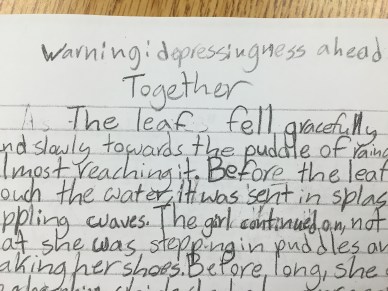 Warning: depressingness ahead
Together
As The leaf fell gracefully
nd slowly towards the puddle of rain
lmost reaching it. Before the leaf
ouch the water, it was sent in splas
ppling waves. The girl continued on, not
at she was stepping in puddles an
aking her shoes. Before, long, she